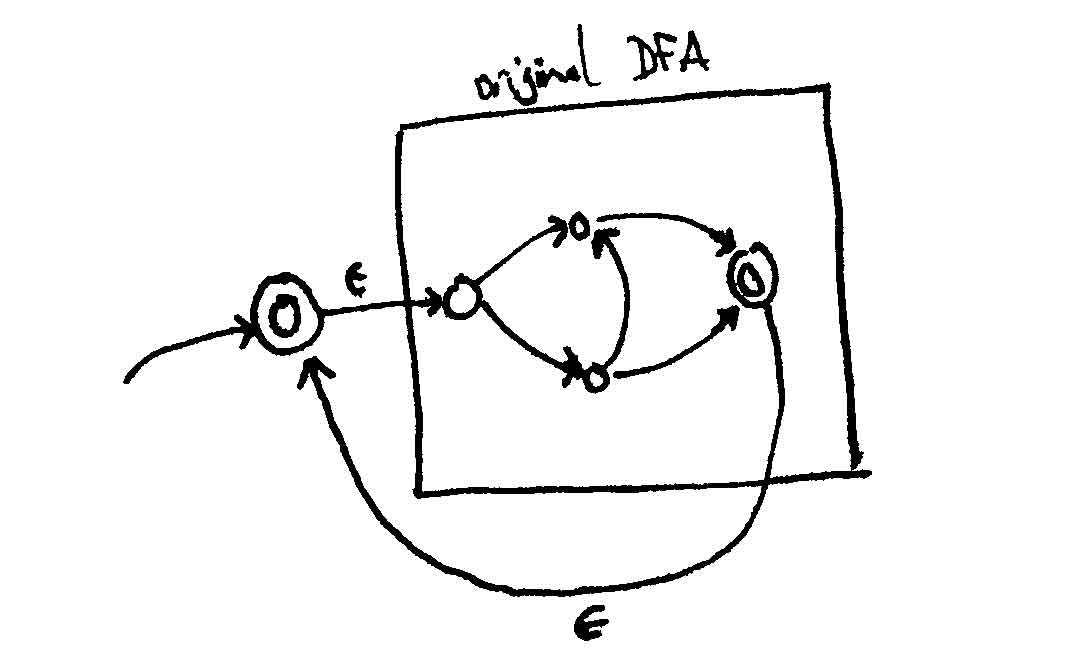 original DFA
ϵ
ϵ